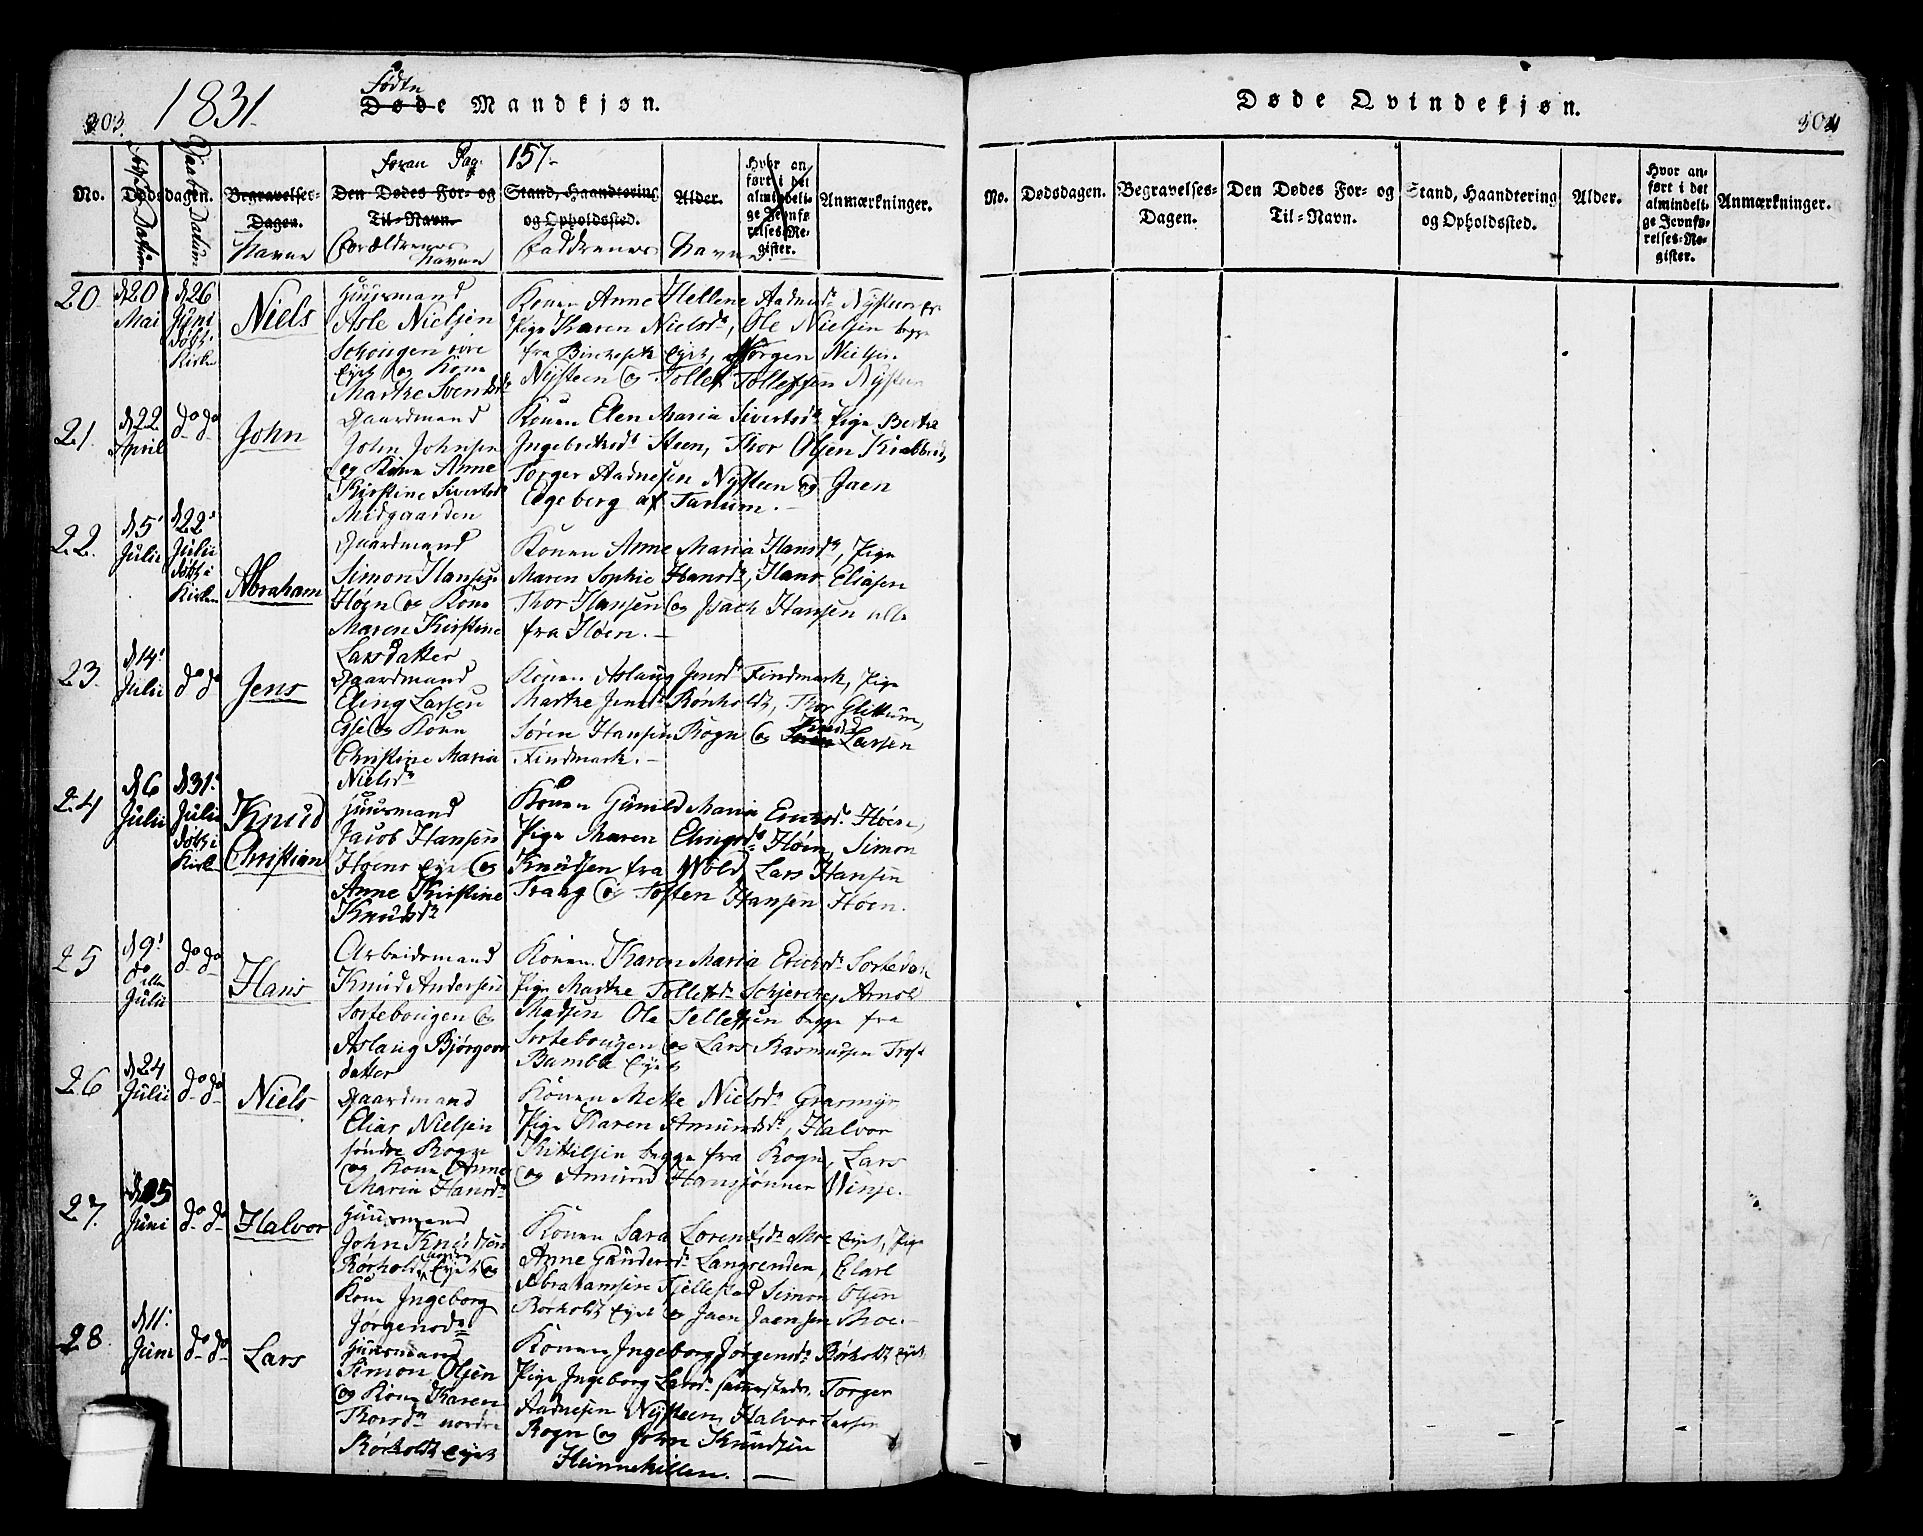 303.
1831.
Fødte
Døde Mandkjøn.
foran Pag. 157.
No.
Dødsdagen.
Fødsels Datum
Daabs Datum
Begravelses-
Dagen.
Navne
Den Dødes For- og
Til-Navn.
Forældrenes
Navne
Stand, Haandtering
og Opholdssted.
Faddrenes Navne.
Alder.
Hvor an-
ført i det
almindeli-
ge Jevnfø-
relses-Re-
gister.
Anmærkninger.
20.
d 20
Mai
d 26
Juni
døbt i
Kirken
Niels
Huusmand
Asle Nielsen
Schougen øvre
Eyet og Kone
Marthe Svendsdr
Konen Anne Hellene Aadnesdr Nysteen
Pige Karen Nielsdr, Ole Nielsen begge
fra Eyet, Jørgen Nielsen
Nysteen og Tollef Tollefsen Nysteen
21.
d 22
April
do do
John
Gaardmand
John Johnsen
og Kone Anne
Kirstine Sivertsdr
Midgaarden
Konen Elen Maria Sivertsdr Pige Berthe
Ingebretsdr Steen, Thor Olsen Krabberød,
Torger Aadnesen Nysteen og Jaen
Edgeberg af Tanum.
22.
d 5
Julii
d 22
Julii
døbt i
Kirken
Abraham
Gaardmand
Simon Hansen
Høen og Kone
Maren Kirstine
Larsdatter
Konen Anne Maria Hansdr, Pige
Maren Sophie Hansdr, Hans Eliasen
Thor Hansen og Isach Hansen alle
fra Høen.
23.
d 14
Julii
do do
Jens
Gaardmand
Eling Larsen
og Kone
Christine Maria
Nielsdr
Konen Aslaug Jensdr Findmark, Pige
Marthe Jensdr Rønholdt, Thor Glittum,
Søren Hansen Rogn og Knud Larsen
Findmark.
24
d 6
Julii
d 31
Julii
døbt i
Kirke
Knud
Christian
Huusmand
Jacob Hansen
Høens Eye og
Anne Kirstine
Knudsdr
Konen Gunild Maria Ericksdr Høen,
Pige Maren Elingsdr Høen, Simon
Knudsen fra Wold, Lars Hansen
Traag og Tosten Hansen Høen.
25
d 9
do
Julii
do do
Hans
Arbeidsmand
Knud Andersen
Sortebougen og
Aslaug Bjørgovs
datter
Konen Karen Maria Ericksdr
Pige Marthe Tollefsdr Schjercke, Arnold
Madsen Ole Tellefsen begge fra
Sortebougen og Lars Rasmussen
Bamble Eyet
26
d 24
Julii
do do
Niels
Gaardmand
Elias Nielsen
søndre Rogne
og Kone Anne
Maria Hansdr
Konen Mette Nielsdr Grasmyr
Pige Karen Amundsdr, Halvor
Kittilsen begge fra Rogn, Lars
og Amund Hanssønner Vinje.
27.
Juni
do do
Halvor
Huusmand
John Knudsen
Rørholdt Eyet og
Kone Ingeborg
Jørgensdr
Konen Sara Lorentsdr Moe Eyet, Pige
Anne Gundersdr Langrenden,
Abrahamsen Fjellestad Simon Olsen
Rørholdt Eyet og Jaen Jaensen Moe.
28.
d 11
Juni
do do
Lars
Huusmand
Simon Olsen
og Kone Karen
Thorsdr nordre
Rørholdt Eyet
Konen Ingeborg Jørgensdr Rørholdt Eyet
Pige Ingeborg Larsdr sammesteds, Torger
Aadnesen Nysteen, Halvor Larsen
Rogn og John Knudsen
Heinnekillen.
Døde Qvindekjøn.
304
No.
Dødsdagen.
Begravelses-
Dagen.
Den Dødes For- og
Til-Navn.
Stand, Haandtering
og Opholdssted.
Alder.
Hvor an-
ført i det
almindeli-
ge Jevnfø-
relses-Re-
gister.
Anmærkninger.